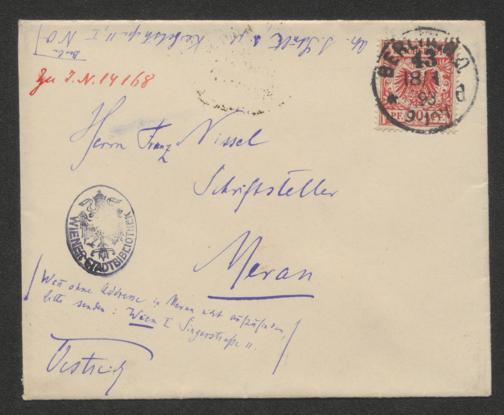 Zu I.N. 14168
BERLIN N.O.
43
18/1
93
9-10 V
PFENNIG
Herrn Franz Nissel
Schriftsteller
Meran
WIENER STADTBIBLIOTHEK
Wenn ohne Adresse in Meran nicht aufzufinden,
bitte senden: Wien I Singerstraße 11.
Oestreich